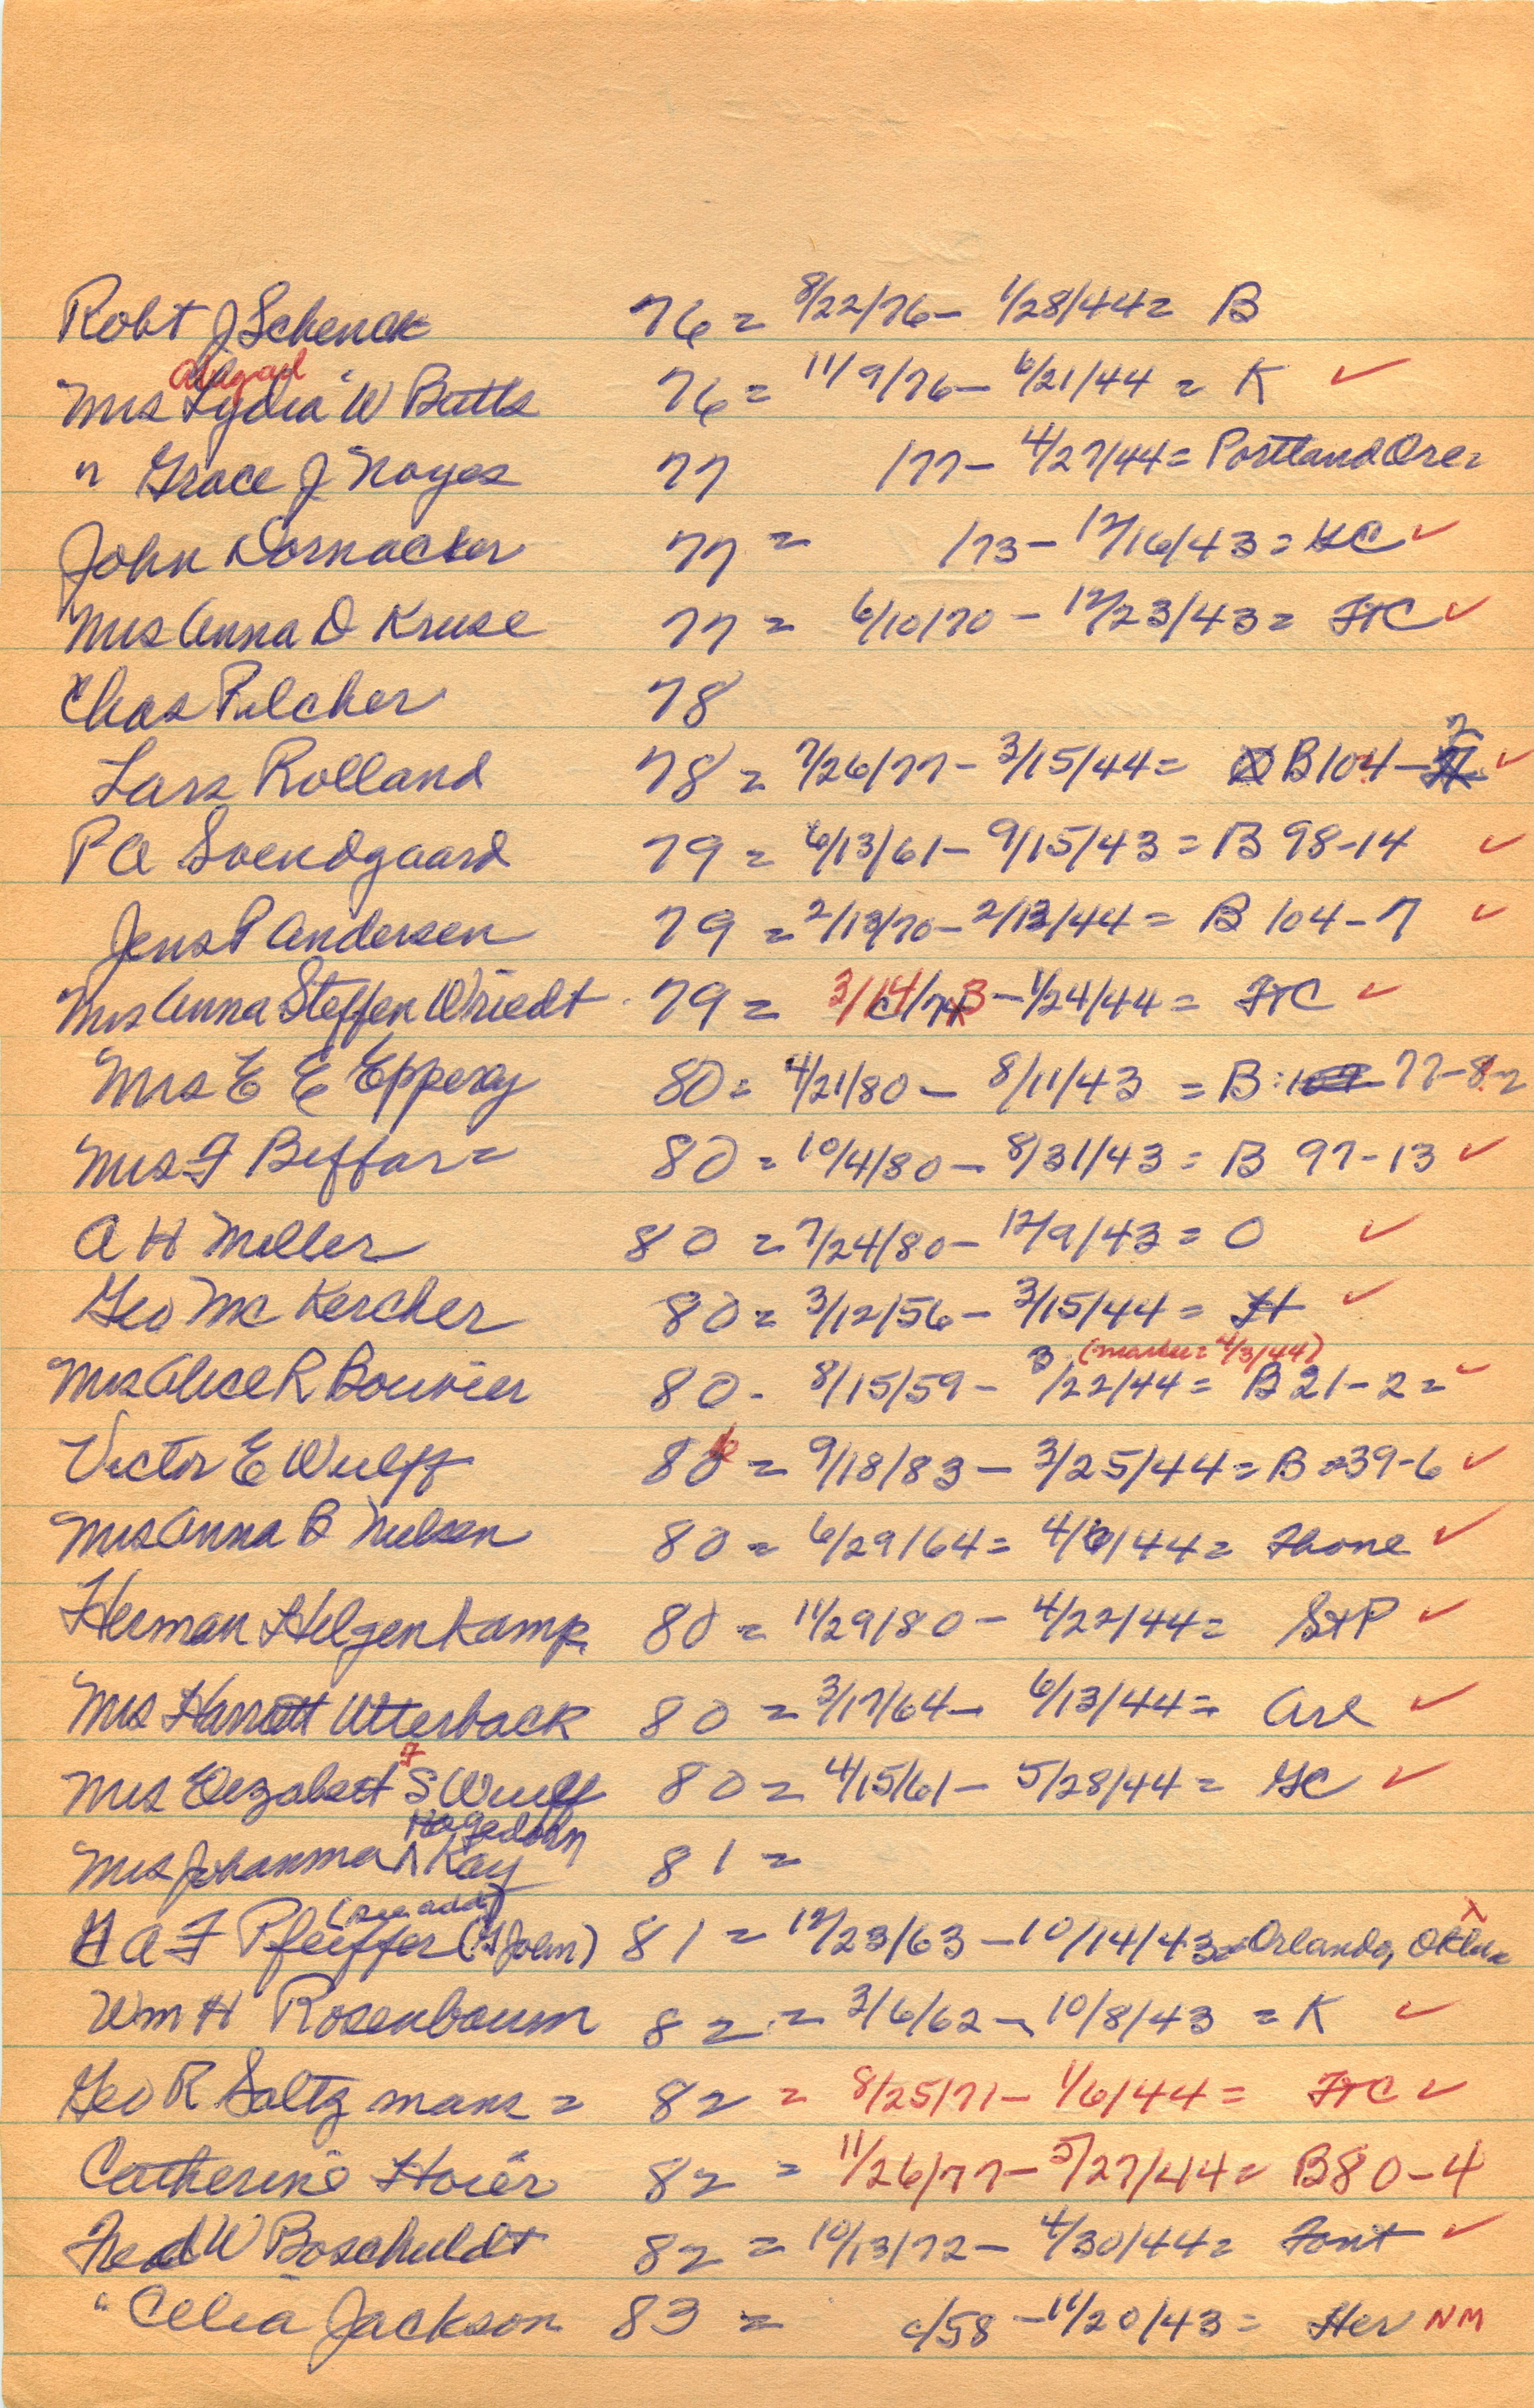 Robt J Schenck 76 = 8/22/76 - 1/28/44 = B
Abigail
Mrs "Lydia" W Butts 76 = 11/9/76 - 6/21/44 = K ✓
" Grace J Noyes 77 /77 - 4/27/44 = Portland Ore =
John Dornacker 77 = /73 - 12/16/43 = GC ✓
Mrs Anna D Kruse 77 = 6/10/70 - 12/23/43 = FtC ✓
Chas Pilcher 78
Lars Rolland 78 = 7/26/77 - 3/15/44 = B 104 - 2 ✓
P A Svendgaard 79 = 6/13/61 - 9/15/43 = B 98-14 ✓
Jens P Andersen 79 = 2/13/70 - 2/13/44 = B 104-7 ✓
Mrs Anna Steffen Wriedt 79 = 3/14/ - 1/24/44 = FtC ✓
Mrs E E Epperly 80 = 4/21/80 - 8/11/43 = B : 77-8
Mrs F Beffar = 80 = 10/4/80 - 8/31/43 = B 97-13 ✓
A H Miller 80 = 7/24/80 - 12/9/43 = O ✓
Geo McKercher 80 = 3/12/56 - 3/15/44 = H ✓
(marker = 4/3/44)
Mrs Alice R Bouvier 80 - 8/15/59 - 3/22/44 = B 21-2 = ✓
Victor E Wulff 80 = 9/18/83 - 3/25/44 = B = 39-6 ✓
Mrs Anna B Nielsen 80 = 6/29/64 = 4/6/44 = Fhone ✓
Herman Helgenkamp 80 = 11/29/80 - 4/22/44 = StP ✓
Mrs Harriett Utterback 80 = 3/17/64 - 6/13/44 = Arl ✓
F
Mrs Elezabeth S Wulff 80 = 4/15/61 - 5/28/44 = GC ✓
Hagedohn
Mrs Johanna ^ Kay 81 =
(see add)
G A F Pfeiffer (St John) 81 = 12/23/63 - 10/14/43 = Orlando, Okla x
Wm H Rosenbaum 82 = 3/6/62 - 10/8/43 = K ✓
Geo R Saltzmann = 82 = 8/25/71 - 1/6/44 = FtC ✓
Catherine Hoier 82 = 11/26/77 - 5/27/44 = B80-4
Fred W Boschuldt 82 = 10/13/72 - 4/30/44 = Font ✓
" Celia Jackson 83 = c/58 - 11/20/43 = Her NM